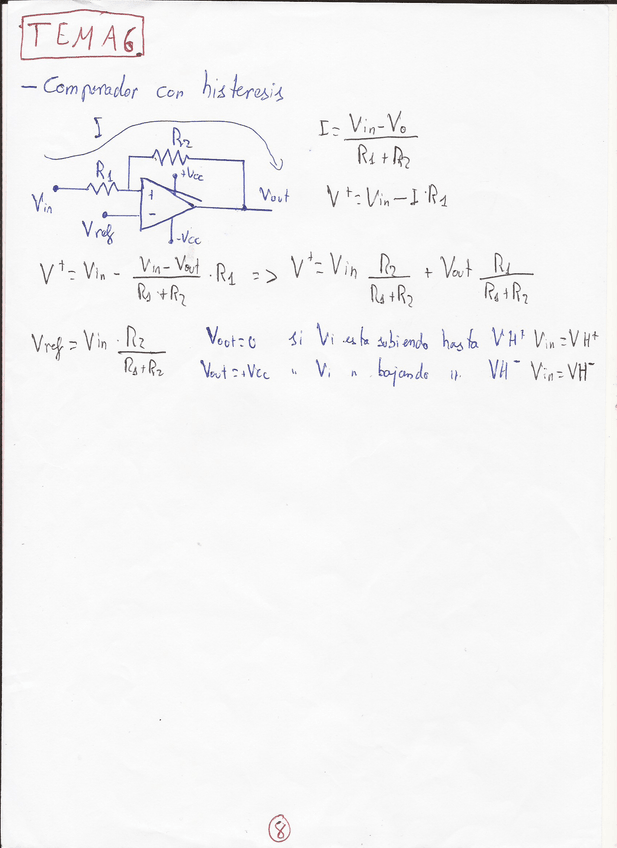 TEMA 6.
- Comparador con histeresis
I
R2
R1
+Vcc
Vin
+
-
Vout
Vref
-Vcc
I = (Vin - Vo) / (R1 + R2)
V⁺ = Vin - I · R1
V⁺ = Vin - (Vin - Vout) / (R1 + R2) · R1 => V⁺ = Vin R2 / (R1 + R2) + Vout R1 / (R1 + R2)
Vref = Vin · R2 / (R1 + R2)
Vout = 0 si Vi esta subiendo hasta VH⁺ Vin = VH⁺
Vout = +Vcc " Vi " bajando " VH⁻ Vin = VH⁻
8